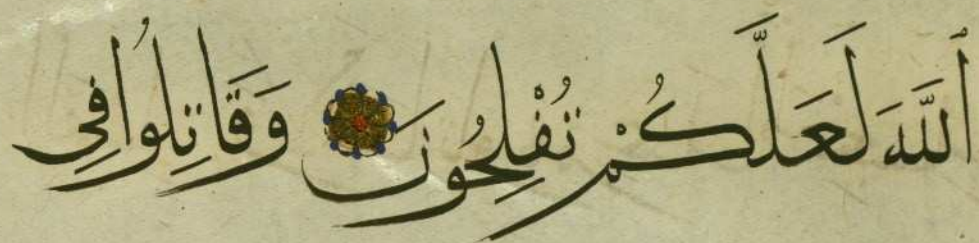 ٱللَّهَ لَعَلَّكُمْ تُفْلِحُونَ وَقَاتِلُوا فِي